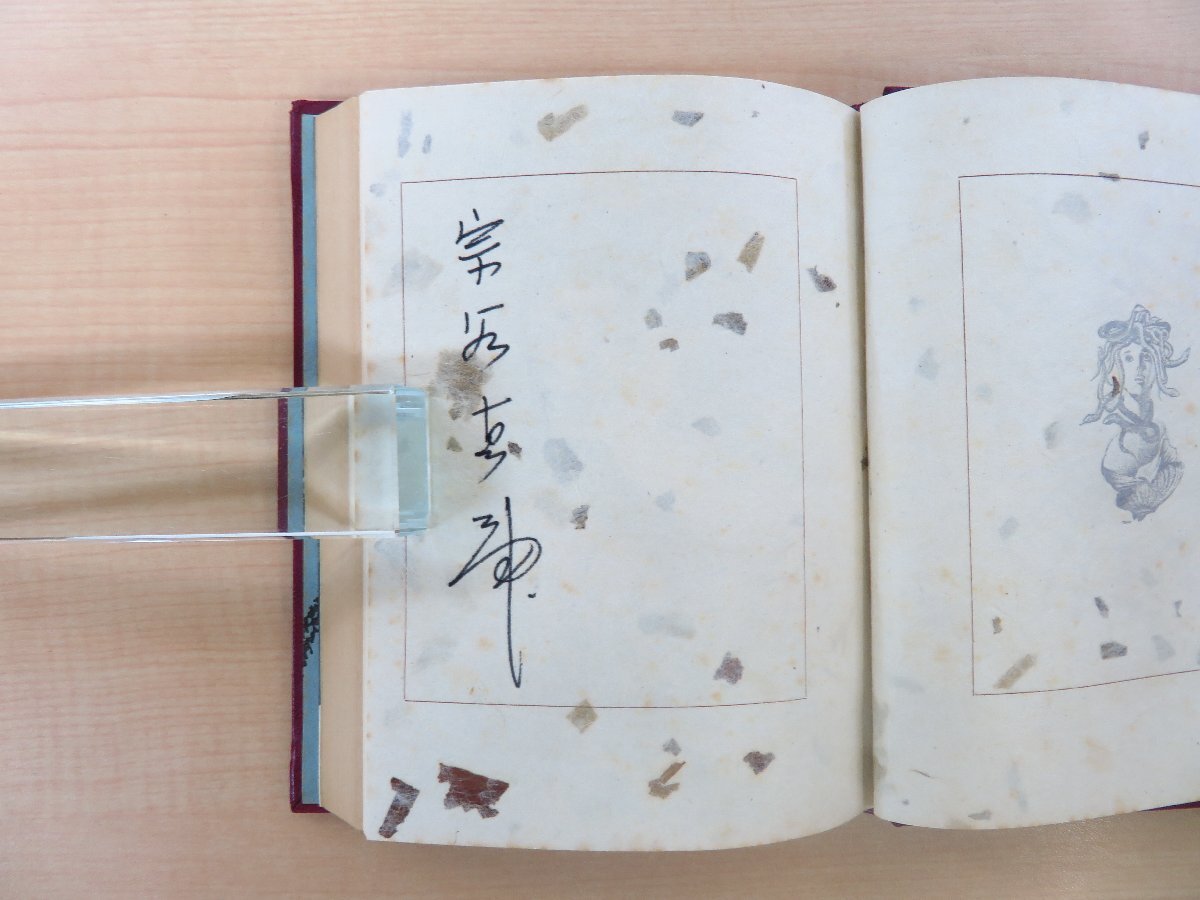 宗谷真爾